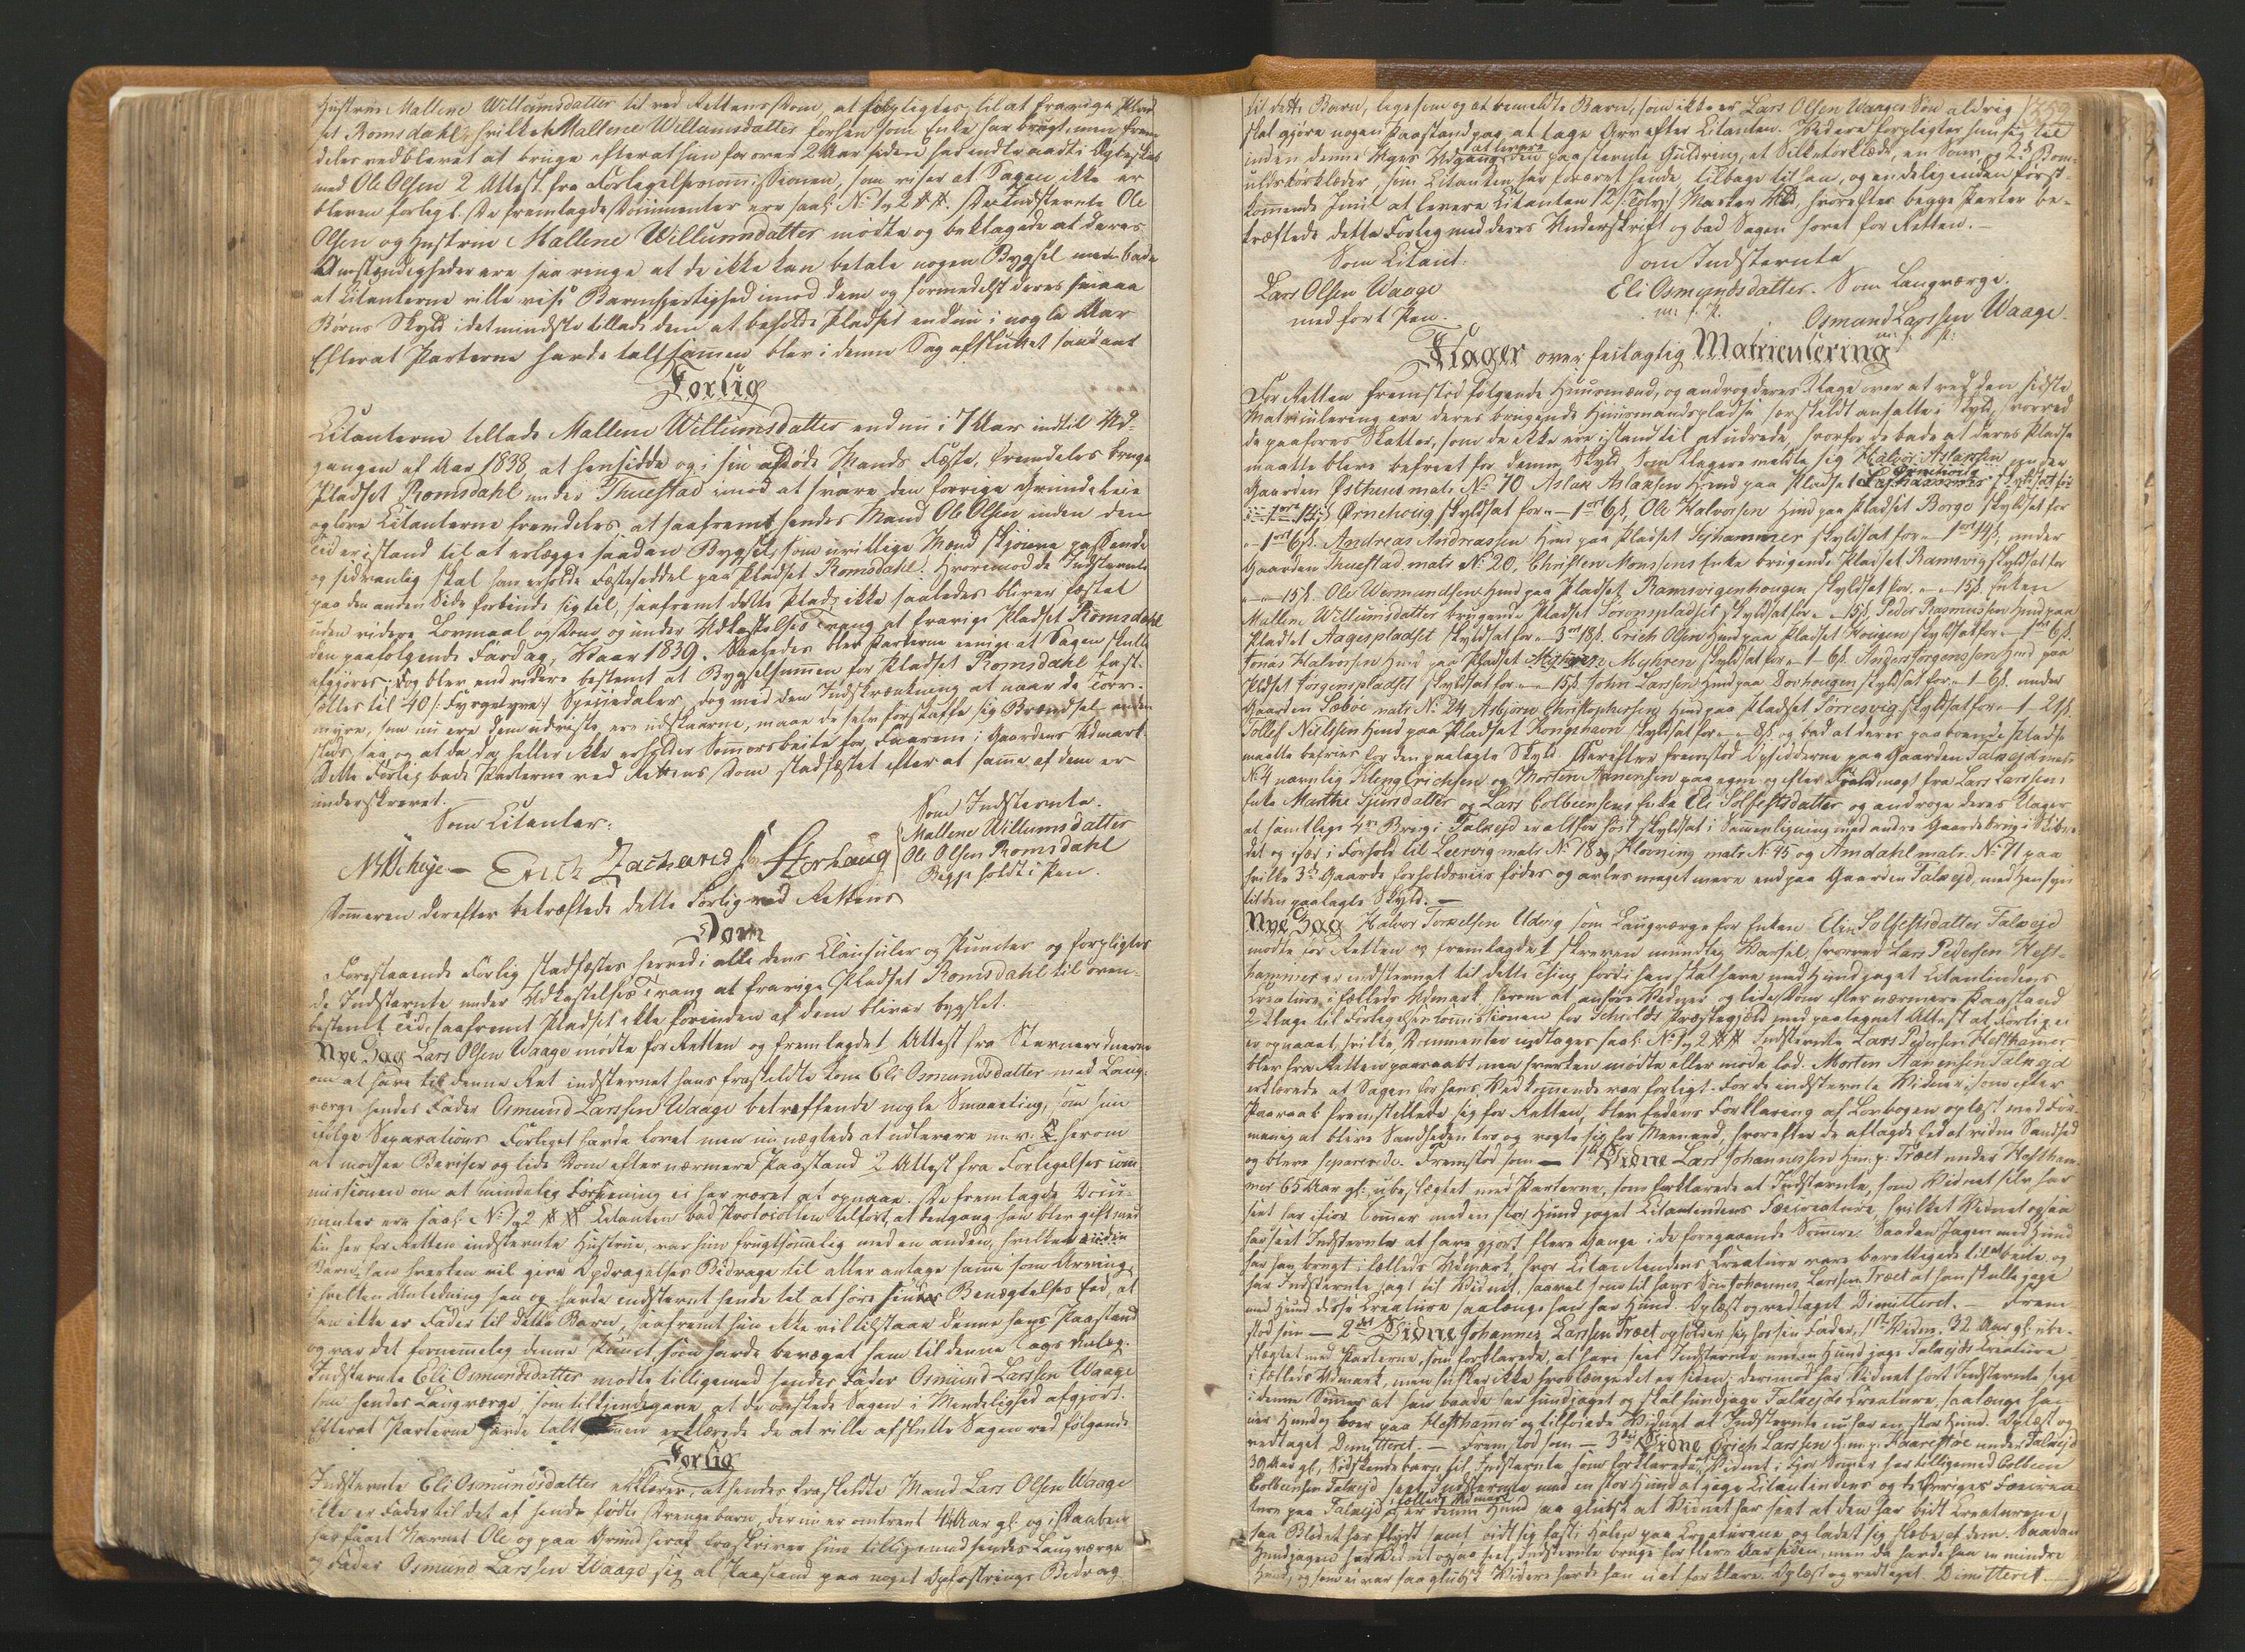 Hustrue Mallene Willumsdatter til ved Rettens Dom at forpligtes til at fravige Plad-
set Romsdahl, hvilket Mallene Willumsdatter forhen som Enke har brugt men frem-
deles vedblevet at bruge efterat hun for over 2 Aar siden har indtraadt i Ægteskab
med Ole Olsen 2 Attest fra Forligelsescommissionen, som viser at Sagen ikke er
bleven forligt. De fremlagde Documenter ere saal: No 1 og 2 ## De Indstevnte Ole
Olsen og Hustrue Mallene Willumsdatter mødte og beklagede at deres
Omstændigheder ere saa ringe at de ikke kan betale nogen Bygsel men bade
at Citanterne ville vise Barmhjertighed imod dem og formedelst deres smaa
Børns Skyld i det mindste tillade dem at beholde Pladset endnu i nogle Aar
Efterat Parterne havde talt sammen blev i denne Sag afsluttet saadant
Forlig
Citanterne tillade Mallene Willumsdatter endnu i 7 Aar indtil Ud-
gangen af Aar 1838 at hensidde og i sin afdøde Mands Fæste, fremdeles bruge
Pladset Romsdahl under Thuestad imod at svare den forrige Grundeleie
og love Citanterne fremdeles at saafremt hendes Mand Ole Olsen inden den
Tid er istand til at erlægge saadan Bygsel, som uvillige Mænd skjønne passende
og sædvanlig skal han erholde Fæsteseddel paa Pladset Romsdahl. Hvorimod de Indstevnte
paa den anden Side forbinde sig til, saafremt dette Plads ikke saaledes bliver fæstet
uden videre Lovmaal og Dom og under Udkastelses Tvang at fravige Pladset Romsdahl
den paafølgende Fardag, Vaar 1839. Saaledes blev Parterne eenige at Sagen skulle
afgjøres. Dog blev end videre bestemt at Bygselsummen for Pladset Romsdahl fast-
sættes til 40 /:Fyrgetyve:/ Speciedaler, dog med den Indskrænkning at naar de Torv-
myre, som nu ere dem udviste, ere udskaarne, maae de selv forskaffe sig Brændsel anden
steds, saa og at de dog heller ikke erholder Sommersbeite for Faarene i Gaardens Udmark
Dette Forlig bade Parterne ved Rettens Dom stadfæstet efter at samme af dem er
underskrevet.
Som Citanter:
Som Indstevnte.
Mallene Willumsdatter
Ole Olsen Romsdahl
Begge holdt i Pen.
Erich Zachariasen Storhaug
Dommeren derefter bekræftede dette Forlig ved Rettens
Dom
Forestaaende Forlig stadfæstes herved i alle dens Clausuler og Puncter og forpligtes
de Indstevnte under Udkastelses Tvang at fravige Pladset Romsdahl til oven-
bestemt Tid, saafremt Pladset ikke forinden af dem bliver bygslet.
Nye Sag Lars Olsen Waage mødte for Retten og fremlagde 1 Attest fra Stevnevidnerne
om at have til denne Ret indstevnet hans fraskildte Kone Eli Osmundsdatter med Laug-
værge hendes Fader Osmund Larssen Waage betreffende nogle Smaaeting, som hun
ifølge Separations Forliget havde lovet men nu nægtede at udlevere m. v. herom
at modtage Beviser og lide Dom efter nærmere Paastand 2 Attest fra Forligelses com-
missionen om at mindelig Forening ei har været at opnaae. De fremlagde Docu-
menter ere saal: No 1 og 2 ## Citanten bad Protocollen tilført, at dengang han blev gift med
sin her for Retten indstevnte Hustrue, var hun frugtsommelig med en anden, hvilket
Barn han hverken vil give Opdragelses Bidrag til eller antage samme som Arving,
i hvilken Anledning han og havde indstevnt hende til at høre hendes Benægtelses Eed, at
han ikke er Fader til dette Barn, saafremt hun ikke vil tilstaae denne hans Paastand
og var det fornemmelig denne Punct, som havde bevæget ham til denne Sags Anlæg.
Indstevnte Eli Osmundsdatter mødte tilligemed hendes Fader Osmund Larssen Waage
som hendes Laugværge, som tilkjendegave at de ønskede Sagen i Mindelighed afgjort.
Efterat Parterne havde talt sammen erklærede de at ville afslutte Sagen ved følgende
Forlig
Indstevnte Eli Osmundsdatter erklærer, at hendes fraskildte Mand Lars Olsen Waage
ikke er Fader til det af hende fødte Drengebarn, der nu er omtrent 4 Aar gl: og i Daaben
har faaet Navnet Ole og paa Grund heraf fraskriver hun tilligemed hendes Laugværge
og Fader Osmund Larssen Waage sig al Paastand paa noget Opfostrings Bidrag
359
til dette Barn, ligesom og at bemeldte Barn, som ikke er Lars Olsen Waages Søn aldrig
skal gjøre nogen Paastand paa, at tage Arv efter Citanten. Videre forpligter hun sig til
inden denne Uges Udgang at levere den paastevnte Guldring, et Silketørklæde, en og 2de Bom-
uldstørklæder, som Citanten har foræret hende, tilbage til ham, og endelig inden først-
kommende Juul at levere Citanten 12 /:Tolv:/ Marker Uld, hvorefter begge Parter be-
kræftede dette Forlig med deres Underskrift og bad Sagen hævet for Retten. –
Som Citant.
Lars Olsen Waage
med ført Pen.
Som Indstevnte
Eli Osmundsdatter. Som Laugværge.
m. f. P.
Osmund Larssen Waage
m. f. P.
Klager over feilagtig Matriculering
For Retten fremstod følgende Huusmænd, og androg deres Klage over at ved den sidste
Matriculering ere deres brugende Huusmandspladse særskildt ansatte i Skyld, hvorved
de paaføres Skatter, som de ikke ere istand til at udrede, hvorfor de bade at deres Pladse
maatte blive befriet for denne Skyld. Som Klagere meldte sig Halvor Aslaksen under
Gaarden Østhuus matr. No 70 Aslak Aslaksen Huusmd paa Pladset
Ørnehoug skyldsat for „ – 1 ort 6 s. Ole Halvorsen Huusmd paa Pladset Borge skyldsat for
„ – 1 ort 6 s. Andreas Andreassen Huusmd paa Pladset Sjøhammer skyldsat for „ 1 ort 14 s. under
Gaarden Thuestad matr. No 20, Christen Monssens Enke brugende Pladset Ramsvig skyldsat for
„ – „ 15 s. Ole Wermundsen Huusmd paa Pladset Ramsvigenhougen skyldsat for „ – „ 15 s. Enken
Mallene Willumsdatter brugende Pladset Sørenspladset skyldsat for „ – „ 15 s. Peder Rasmussen Huusmd paa
Pladset Aagespladset skyldsat for „ – 3 ort 18 s. Erich Olsen Huusmd paa Pladset Hougen skyldsat for „ – 1 ort 6 s.
Jonas Halvorsen Huusmd paa Pladset Myhren skyldsat for „ – 1 – 6 s. Anders Jørgenssen Huusmd paa
Pladset Jørgenspladset skyldsat for „ – „ 15 s. John Larssen Huusmd paa Dovhougen skyldsat for „ 1 – 6 s. under
Gaarden Sæbøe matr. No 24, Asbjørn Christophersen Huusmd paa Pladset Torresvig skyldsat for „ – 1 – 21 s.
Tollef Nielsen Huusmd paa Pladset Kongshavn skyldsat for „ – „ 8 s. og bad at deres paaboende Pladse
maatte befries for den paalagte Skyld. Derefter fremstod Opsidderne paa Gaarden Falnejd matr.
No 4 nævnlig Helleg Erichsen og Morten Aanensen paa egne og efter Fuldmagt fra Lars Larssens
Enke Marthe Sjursdatter og Lars Colbeensens Enke Eli Solfestsdatter og androge deres Klager
at samtlige 4re Brug i Falnejd er altfor høit skyldsat i Sammenligning med andre Gaardebrug i Skibre-
det og især i Forhold til Leervig matr. No 18 og Kloening matr. No 45 og Amdahl matr. No 71 paa
hvilke 3de Gaarde forholdsviis fødes og avles meget mere end paa Gaarden Falnejd, med Hensyn
til den paalagte Skyld. –
Nye Sag Halvor Torkelsen Udvig som Laugværge for Enken Eli Solfestsdatter Falnejd
mødte for Retten og fremlagde 1 skreven mundtlig Varsel, hvorved Lars Pedersen Hest-
hammer er indstevnet til dette Thing fordi han skal have med Hund jaget Citantindens
Creature i fælleds Udmark, herom at anhøre Vidner og lide Dom efter nærmere Paastand
2 Klage til Forligelsescommissionen for Schiolds Præstegjeld med paategnet Attest at Forlig ei
er opnaaet, hvilke Documenter indtages saal: No 1 og 2 ## Indstevnte Lars Pedersen Hesthammer
blev fra Retten paaraabt men hverken mødte eller møde lod. Morten Aanensen Falnejd
erklærede at Sagen for hans Vedkommende var forligt. For de indstevnte Vidner, som efter
Paaraab fremstillede sig for Retten, blev Eedens Forklaring af Lovbogen oplæst med For-
maning at blive Sandheden tro og vogte sig for Meeneed, hvorefter de aflagde Eed at vidne Sandhed
og bleve separerede. Fremstod som – 1ste Vidne Lars Johannessen Huusmd p. Træet under Hestham-
mer 65 Aar gl:, ubeslægtet med Parterne, som forklarede at Indstevnte, som Vidnet selv har
seet har ifior Sommer med en stor Hund jaget Citantindens Fæcreature, hvilket Vidnet ogsaa
har seet Indstevnte at have gjort flere Gange i de foregaaende Sommere. Saadan Jagen med Hund
har han brugt i fælleds Udmark, hvor Citantindens Creature vare berettigede til at beite, og
har Indstevnte sagt til Vidnet, saavel som til hans Søn Johannes Larssen Træet at han skulle jage
med Hund disse Creature saalænge han har Hund. Oplæst og vedtaget. Dimitteret. – Frem-
stod som – 2det Vidne Johannes Larssen Træet opholder sig hos sin Fader, 1ste Vidne. 32 Aar gl: ube-
slægtet med Parterne, som forklarede, at have seet Indstevnte med en Hund jage Falnejds Creature
i fælleds Udmark, men husker ikke hvorlænge det er siden; derimod har Vidnet hørt Indstevnte sige
i denne Sommer at han baade har hundjaget og skal hundjage Falnejds Creature, saa længe han
eier Hund og boer paa Hesthammer og tilføiede Vidnet at Indstevnte nu har en stor Hund. Oplæst og
vedtaget. Dimitteret. – Fremstod som – 3die Vidne Erich Larssen Huusmd p. Kaarestøe under Falnejd
39 Aar gl., Sødskendebarn til Indstevnte som forklarede at Vidnet i Fjor Sommer har tilligemed Colbeen
Colbeensen Falnejd seet Indstevnte med en stor Hund at jage Citantindens og de Øvriges Fæcrea-
ture paa Falnejd i fælleds Udmark og er denne Hund saa glubsk at Vidnet har seet at den har bidt Creaturene,
saa Blodet har flydt samt bidt sig fast i Halen paa Creaturene og ladet sig slæbe af dem. Saadan
Hundjagen har Vidnet ogsaa seet Indstevnte bruge for flere Aar siden, men da havde han en mindre
Hund, og som ei var saa glubsk. Videre havde han ei at forklare. Oplæst og vedtaget. Dimitteret. –